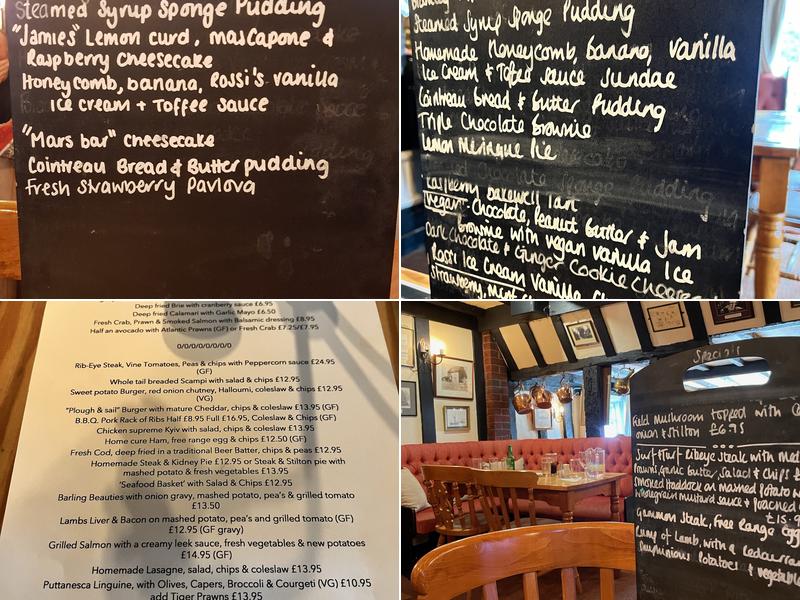 Steamed Syrup Sponge Pudding
"Jamies" Lemon curd, mascapone &
Raspberry Cheesecake
Honeycomb, banana, Rossi's vanilla
Ice cream + Toffee sauce
"Mars bar" cheesecake
Cointreau Bread & Butter pudding
Fresh Strawberry Pavlova
Steamed Syrup Sponge Pudding
Homemade Honeycomb, banana, vanilla
Ice Cream & Toffee sauce sundae
Cointreau Bread & Butter Pudding
Triple Chocolate Brownie
Lemon Meringue Ice
Raspberry Bakewell Tart
Vegan - Chocolate, Peanut Butter & Jam
Brownie with vegan vanilla Ice
Dark Chocolate & Ginger Cookie Cheese
Rossi Ice Cream Vanilla
Strawberry, Mint
Deep fried Brie with cranberry sauce £6.95
Deep fried Calamari with Garlic Mayo £6.50
Fresh Crab, Prawn & Smoked Salmon with Balsamic dressing £8.95
Half an avocado with Atlantic Prawns (GF) or Fresh Crab £7.25/£7.95
0/0/0/0/0/0/0
Rib-Eye Steak, Vine Tomatoes, Peas & chips with Peppercorn sauce £24.95
(GF)
Whole tail breaded Scampi with salad & chips £12.95
Sweet potato Burger, red onion chutney, Halloumi, coleslaw & chips £12.95
(VG)
"Plough & sail" Burger with mature Cheddar, chips & coleslaw £13.95 (GF)
B.B.Q. Pork Rack of Ribs Half £8.95 Full £16.95, Coleslaw & Chips (GF)
Chicken supreme Kyiv with salad, chips & coleslaw £13.95
Home cure Ham, free range egg & chips £12.50 (GF)
Fresh Cod, deep fried in a traditional Beer Batter, chips & peas £12.95
Homemade Steak & Kidney Pie £12.95 or Steak & Stilton pie with
mashed potato & fresh vegetables £13.95
'Seafood Basket' with Salad & Chips £12.95
Barling Beauties with onion gravy, mashed potato, pea's & grilled tomato
£13.50
Lambs Liver & Bacon on mashed potato, pea's and grilled tomato (GF)
£12.95 (GF gravy)
Grilled Salmon with a creamy leek sauce, fresh vegetables & new potatoes
£14.95 (GF)
Homemade Lasagne, salad, chips & coleslaw £13.95
Puttanesca Linguine, with Olives, Capers, Broccoli & Courgeti (VG) £10.95
add Tiger Prawns £13.95
Specials
Field Mushroom topped with
onion & Stilton £6.95
Surf & Turf Ribeye Steak with
Prawns, garlic butter, Salad & Chips £
Smoked Haddock on mashed Potato
wholegrain mustard sauce & Poached
£15.9
Gammon Steak, Free Range Egg
Rump of Lamb, with a
Dauphinoise Potatoes & vegetable